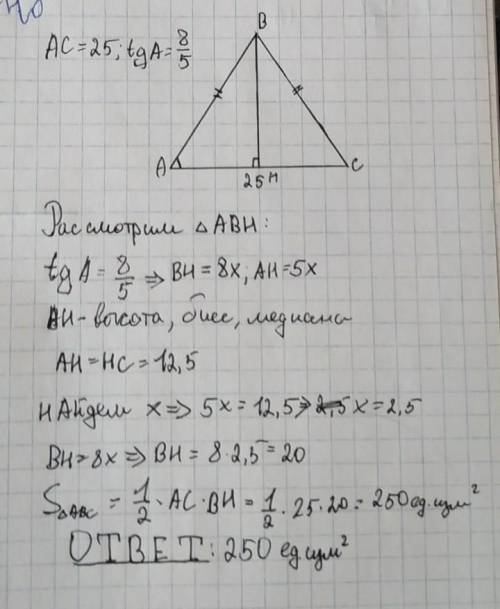 AC = 25; tg A = 8/5
B
A
C
25 H
Рассмотрим △ABH:
tg A = 8/5 ⇒ BH = 8x; AH = 5x
BH - высота, бисс, медиана
AH = HC = 12,5
нАйдем x ⇒ 5x = 12,5 ⇒ x = 2,5
BH = 8x ⇒ BH = 8 · 2,5 = 20
S△ABC = 1/2 · AC · BH = 1/2 · 25 · 20 = 250 ед. изм²
ОТВЕТ: 250 ед изм²